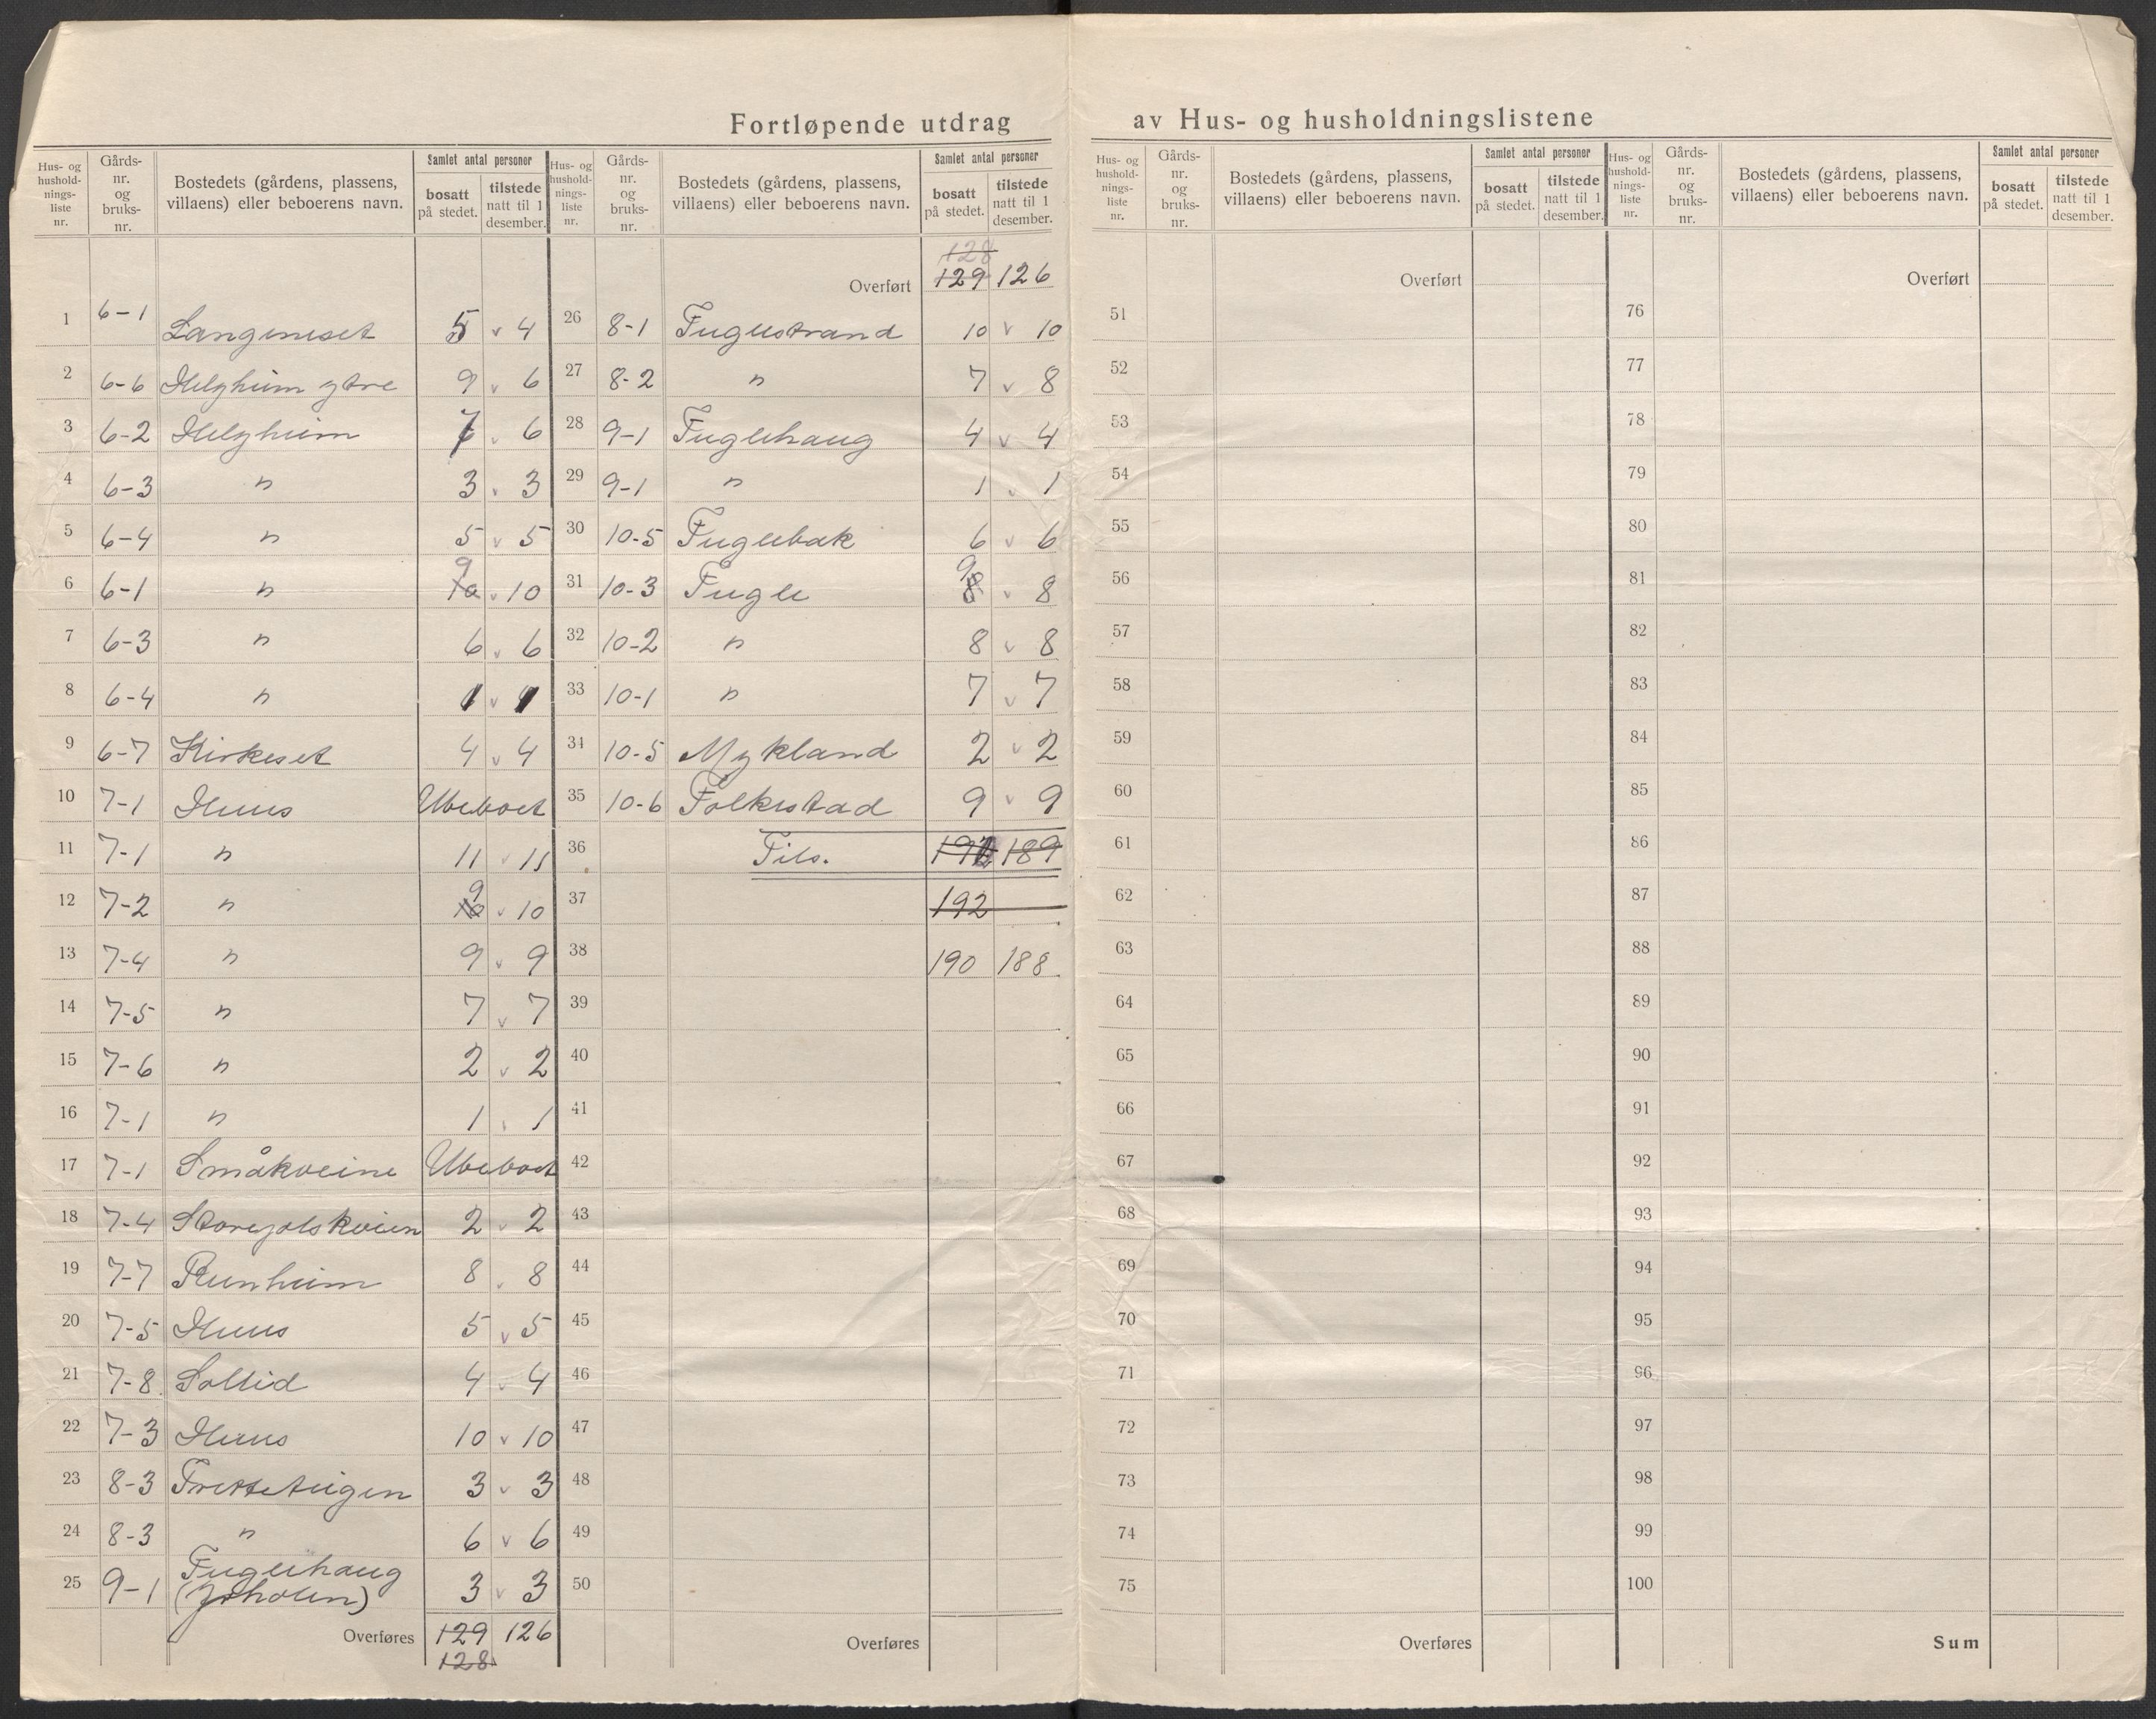 Fortløpende utdrag av Hus- og husholdningslistene
Hus- og hushold-nings-liste nr. Gårds-nr. og bruks-nr. Bostedets (gårdens, plassens, villaens) eller beboerens navn. Samlet antal personer bosatt på stedet. tilstede natt til 1 desember.
1 6-1 Langeneset 5 v 4
2 6-6 Helgheim ytre 9 v 6
3 6-2 Helgheim 7 v 6
4 6-3 " 3 v 3
5 6-4 " 5 v 5
6 6-1 " 9 10 v 10
7 6-3 " 6 v 6
8 6-4 " 1 v 1
9 6-7 Kirkeset 4 v 4
10 7-1 Huus Ubeboet
11 7-1 " 11 v 11
12 7-2 " 9 10 v 10
13 7-4 " 9 v 9
14 7-5 " 7 v 7
15 7-6 " 2 v 2
16 7-1 " 1 v 1
17 7-1 Småkveine Ubeboet
18 7-4 2 v 2
19 7-7 Runheim 8 v 8
20 7-5 Huus 5 v 5
21 7-8 Sollid 4 v 4
22 7-3 Huus 10 v 10
23 8-3 3 v 3
24 8-3 " 6 v 6
25 9-1 Fuglehaug
3 v 3
Overføres 129 126
128
Hus- og hushold-nings-liste nr. Gårds-nr. og bruks-nr. Bostedets (gårdens, plassens, villaens) eller beboerens navn. Samlet antal personer bosatt på stedet. tilstede natt til 1 desember.
128
Overført 129 126
26 8-1 Fuglestrand 10 v 10
27 8-2 " 7 v 8
28 9-1 Fuglehaug 4 v 4
29 9-1 " 1 v 1
30 10-5 Fuglebak 6 v 6
31 10-3 Fugle 9 8 v 8
32 10-2 " 8 v 8
33 10-1 " 7 v 7
34 10-5 Mykland 2 v 2
35 10-6 Folkestad 9 v 9
36 Tils. 189
37 192
38 190 188
39
40
41
42
43
44
45
46
47
48
49
50
Overføres
Hus- og hushold-nings-liste nr. Gårds-nr. og bruks-nr. Bostedets (gårdens, plassens, villaens) eller beboerens navn. Samlet antal personer bosatt på stedet. tilstede natt til 1 desember.
Overført
51
52
53
54
55
56
57
58
59
60
61
62
63
64
65
66
67
68
69
70
71
72
73
74
75
Overføres
Hus- og hushold-nings-liste nr. Gårds-nr. og bruks-nr. Bostedets (gårdens, plassens, villaens) eller beboerens navn. Samlet antal personer bosatt på stedet. tilstede natt til 1 desember.
Overført
76
77
78
79
80
81
82
83
84
85
86
87
88
89
90
91
92
93
94
95
96
97
98
99
100
Sum